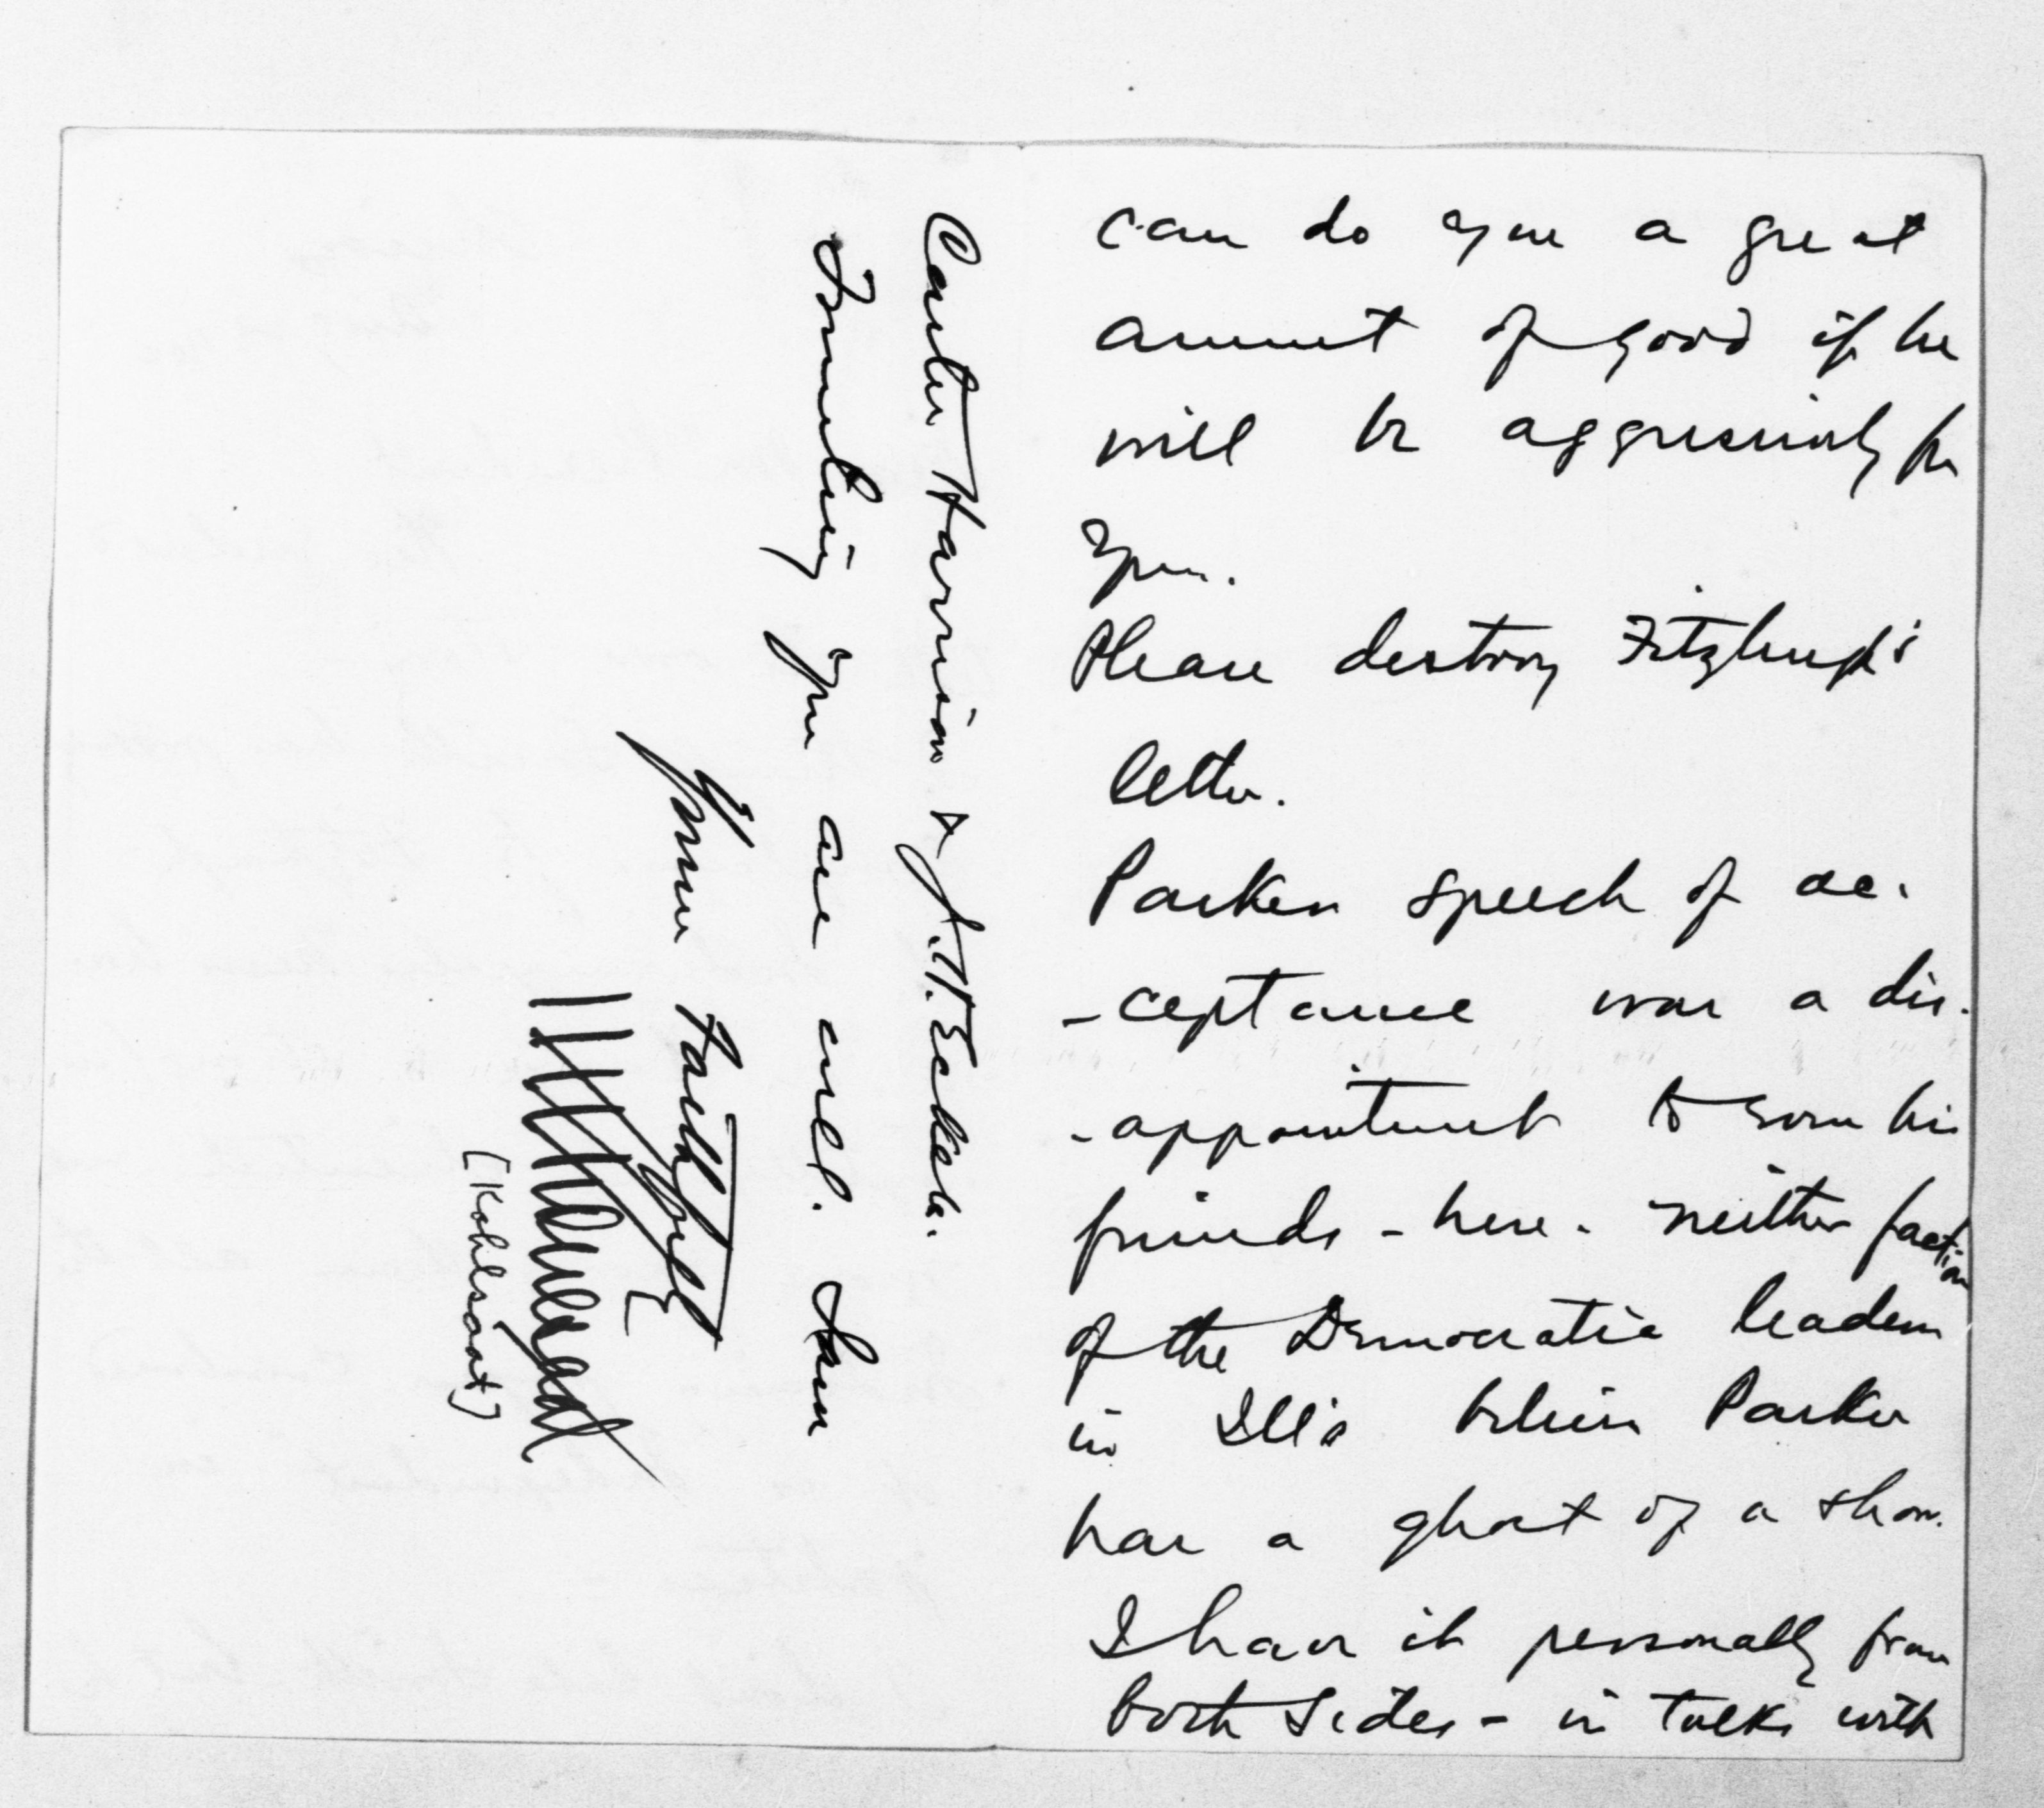 can do you a great
amount of good if he
will be aggressively for
you.
Please destroy Fitzhugh's
letter.
Parker speech of ac-
-ceptance was a dis-
-appointment to some his
friends - here - neither faction
of the Democratic leaders
in Ill's believe Parker
has a ghost of a show.
I have it personally from
both sides - in talks with
Carter Harrison & J. H. Eckels.
Trusting you are well. I am
Yours faithfully
H H Kohlsaat
[Kohlsaat]